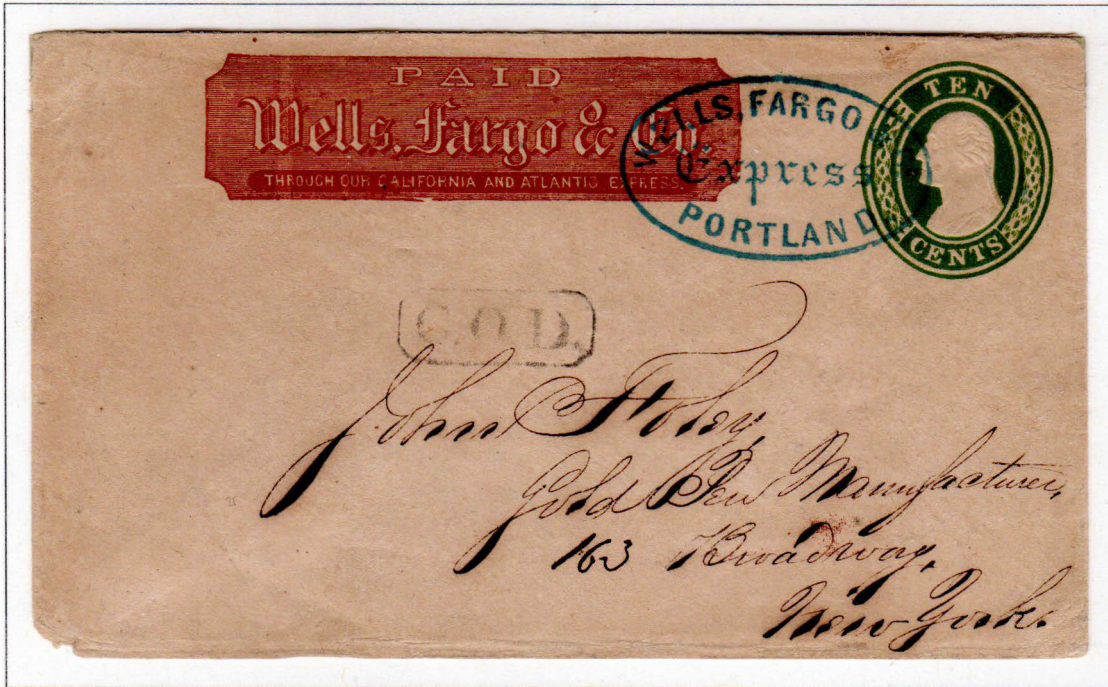 PAID
Wells, Fargo & Co.
THROUGH OUR CALIFORNIA AND ATLANTIC EXPRESS.
WELLS, FARGO &
Express
PORTLAND
TEN
CENTS
C.O.D.
John Foley,
Gold Pen Manufacturer,
163 Broadway,
New York.